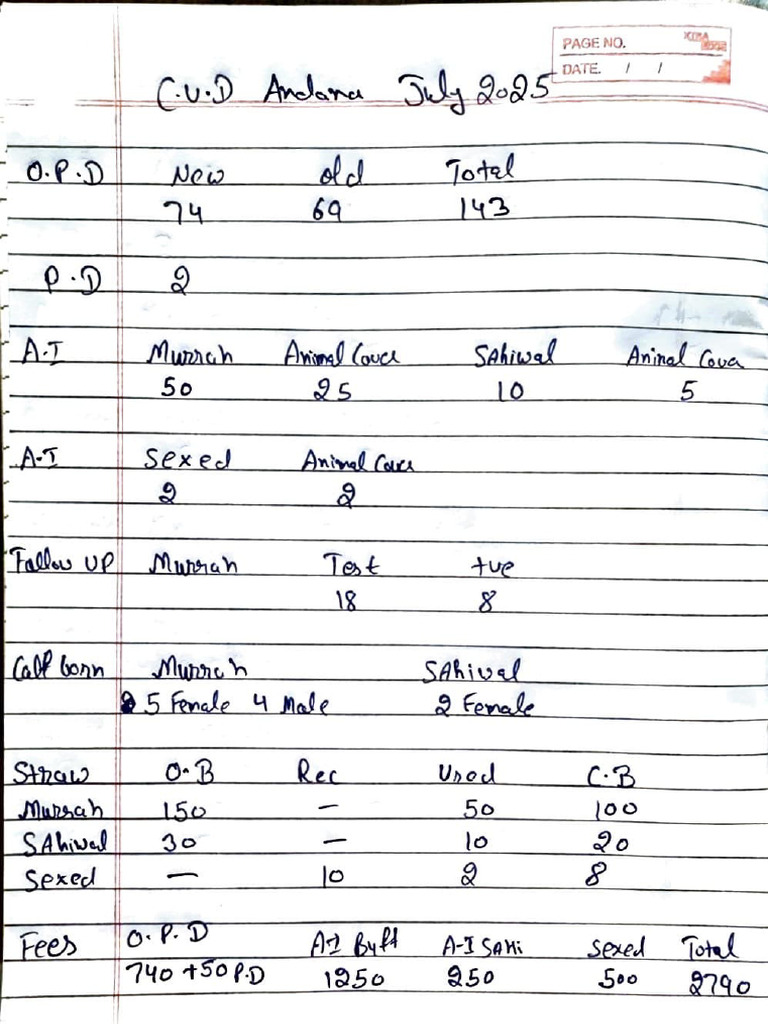 PAGE NO.
DATE. / /
C.V.D Andana July 2025
O.P.D New old Total
74 69 143
P.D 2
A.I Murrah Animal Cover SAhiwal Animal Cover
50 25 10 5
A.I Sexed Animal Cover
2 2
Follow UP Murrah Test +ve
18 8
Calf born Murrah SAhiwal
5 Female 4 Male 2 Female
Straw O.B Rec Used C.B
Murrah 150 — 50 100
SAhiwal 30 — 10 20
Sexed — 10 2 8
Fees O.P.D A-I Buff A-I SAHi Sexed Total
740 +50 P.D 1250 250 500 2790